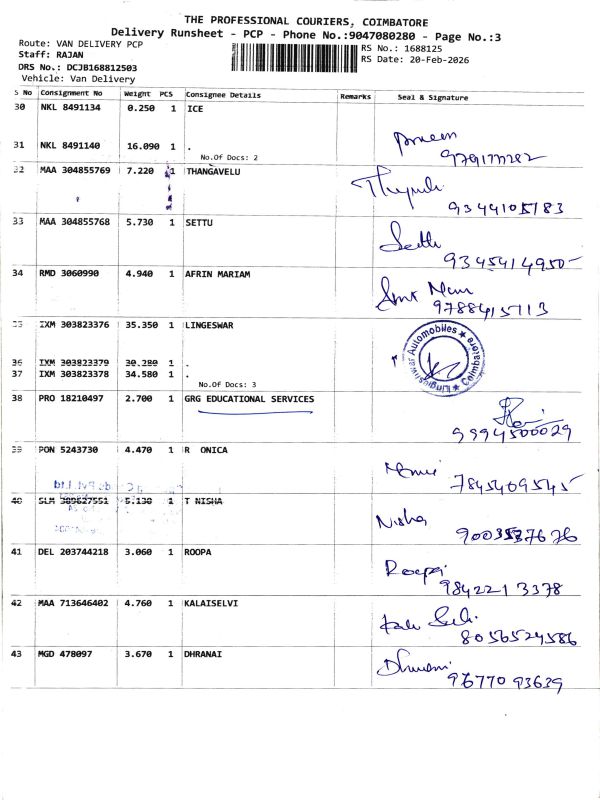 THE PROFESSIONAL COURIERS, COIMBATORE
Delivery Runsheet - PCP - Phone No.:9047080280 - Page No.:3
Route: VAN DELIVERY PCP
Staff: RAJAN
DRS No.: DCJB168812503
Vehicle: Van Delivery
RS No.: 1688125
RS Date: 20-Feb-2026
S No Consignment No Weight PCS Consignee Details Remarks Seal & Signature
30 NKL 8491134 0.250 1 ICE
31 NKL 8491140 16.090 1 .
No.Of Docs: 2
32 MAA 304855769 7.220 1 THANGAVELU
9344105183
33 MAA 304855768 5.730 1 SETTU
Settu
9345414950
34 RMD 3060990 4.940 1 AFRIN MARIAM
9788415113
35 IXM 303823376 35.350 1 LINGESWAR
Lingeshwar Automobiles
Coimbatore
36 IXM 303823379 30.280 1 .
37 IXM 303823378 34.580 1 .
No.Of Docs: 3
38 PRO 18210497 2.700 1 GRG EDUCATIONAL SERVICES
9994500029
39 PON 5243730 4.470 1 R ONICA
7845409545
40 SLM 309827551 5.130 1 T NISHA
Nisha
41 DEL 203744218 3.060 1 ROOPA
Roopa
9842213378
42 MAA 713646402 4.760 1 KALAISELVI
8056524586
43 MGD 478097 3.670 1 DHRANAI
9677093639